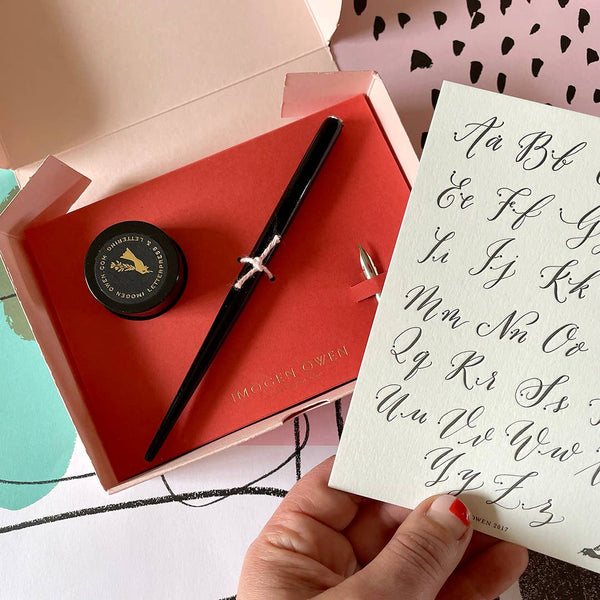 IMOGEN OWEN LETTERPRESS & LETTERING . COM
IMOGEN OWEN
Aa Bb
Ee Ff G
Ii Jj Kk
Mm Nn Oo
Qq Rr Ss
Uu Vv Ww
Yy Zz
OWEN 2017